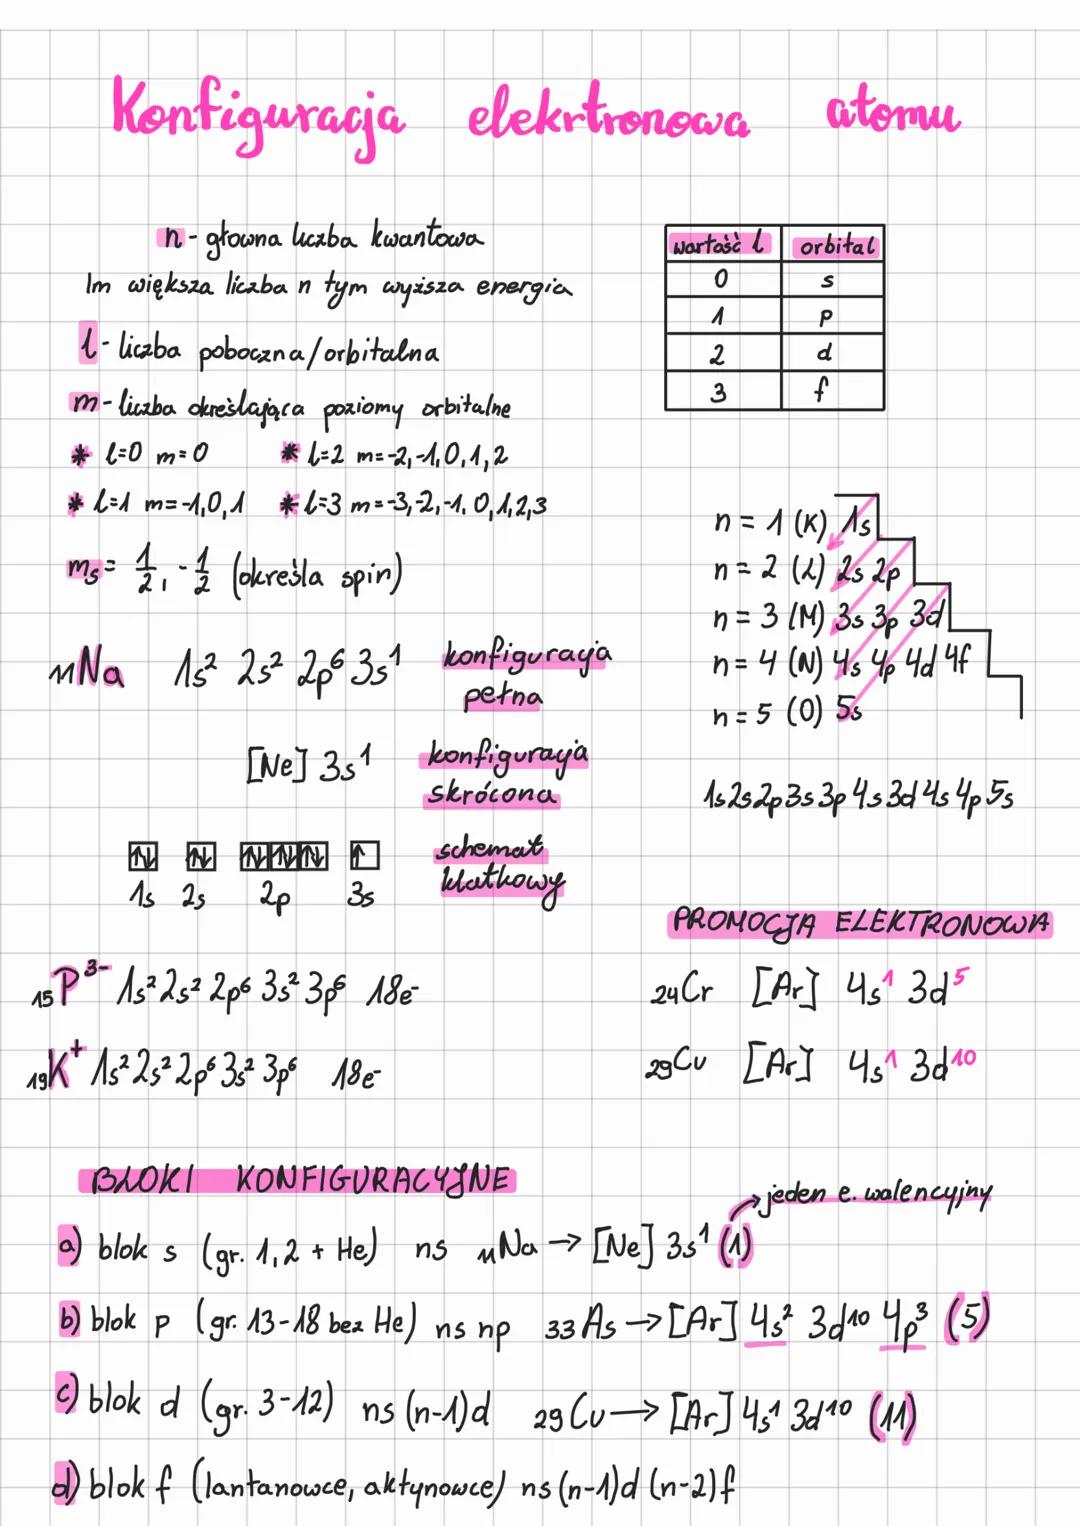 Konfiguracja elekrtronowa atomu
n - głowna liczba kwantowa
Im większa liczba n tym wyższa energia
l - liczba poboczna/orbitalna
m - liczba określająca poziomy orbitalne
* l=0 m=0 * l=2 m=-2,-1,0,1,2
* l=1 m=-1,0,1 * l=3 m=-3,-2,-1,0,1,2,3
mₛ = 1/2, -1/2 (określa spin)
wartość l orbital
0 s
1 p
2 d
3 f
n = 1 (K) 1s
n = 2 (L) 2s 2p
n = 3 (M) 3s 3p 3d
n = 4 (N) 4s 4p 4d 4f
n = 5 (O) 5s
1s2s2p3s3p4s3d4s4p5s
₁₁Na 1s² 2s² 2p⁶ 3s¹ konfiguracja pełna
[Ne] 3s¹ konfiguracja skrócona
↑↓ ↑↓ ↑↓ ↑↓ ↑↓ ↑ schemat klatkowy
1s 2s 2p 3s
₁₅P³⁻ 1s² 2s² 2p⁶ 3s² 3p⁶ 18e⁻
₁₉K⁺ 1s² 2s² 2p⁶ 3s² 3p⁶ 18e⁻
PROMOCJA ELEKTRONOWA
₂₄Cr [Ar] 4s¹ 3d⁵
₂₉Cu [Ar] 4s¹ 3d¹⁰
BLOKI KONFIGURACYJNE
jeden e. walencyjny
a) blok s (gr. 1,2 + He) ns ₁₁Na → [Ne] 3s¹ (1)
b) blok p (gr. 13-18 bez He) ns np 33 As → [Ar] 4s² 3d¹⁰ 4p³ (5)
c) blok d (gr. 3-12) ns (n-1)d 29 Cu → [Ar] 4s¹ 3d¹⁰ (11)
d) blok f (lantanowce, aktynowce) ns (n-1)d (n-2)f